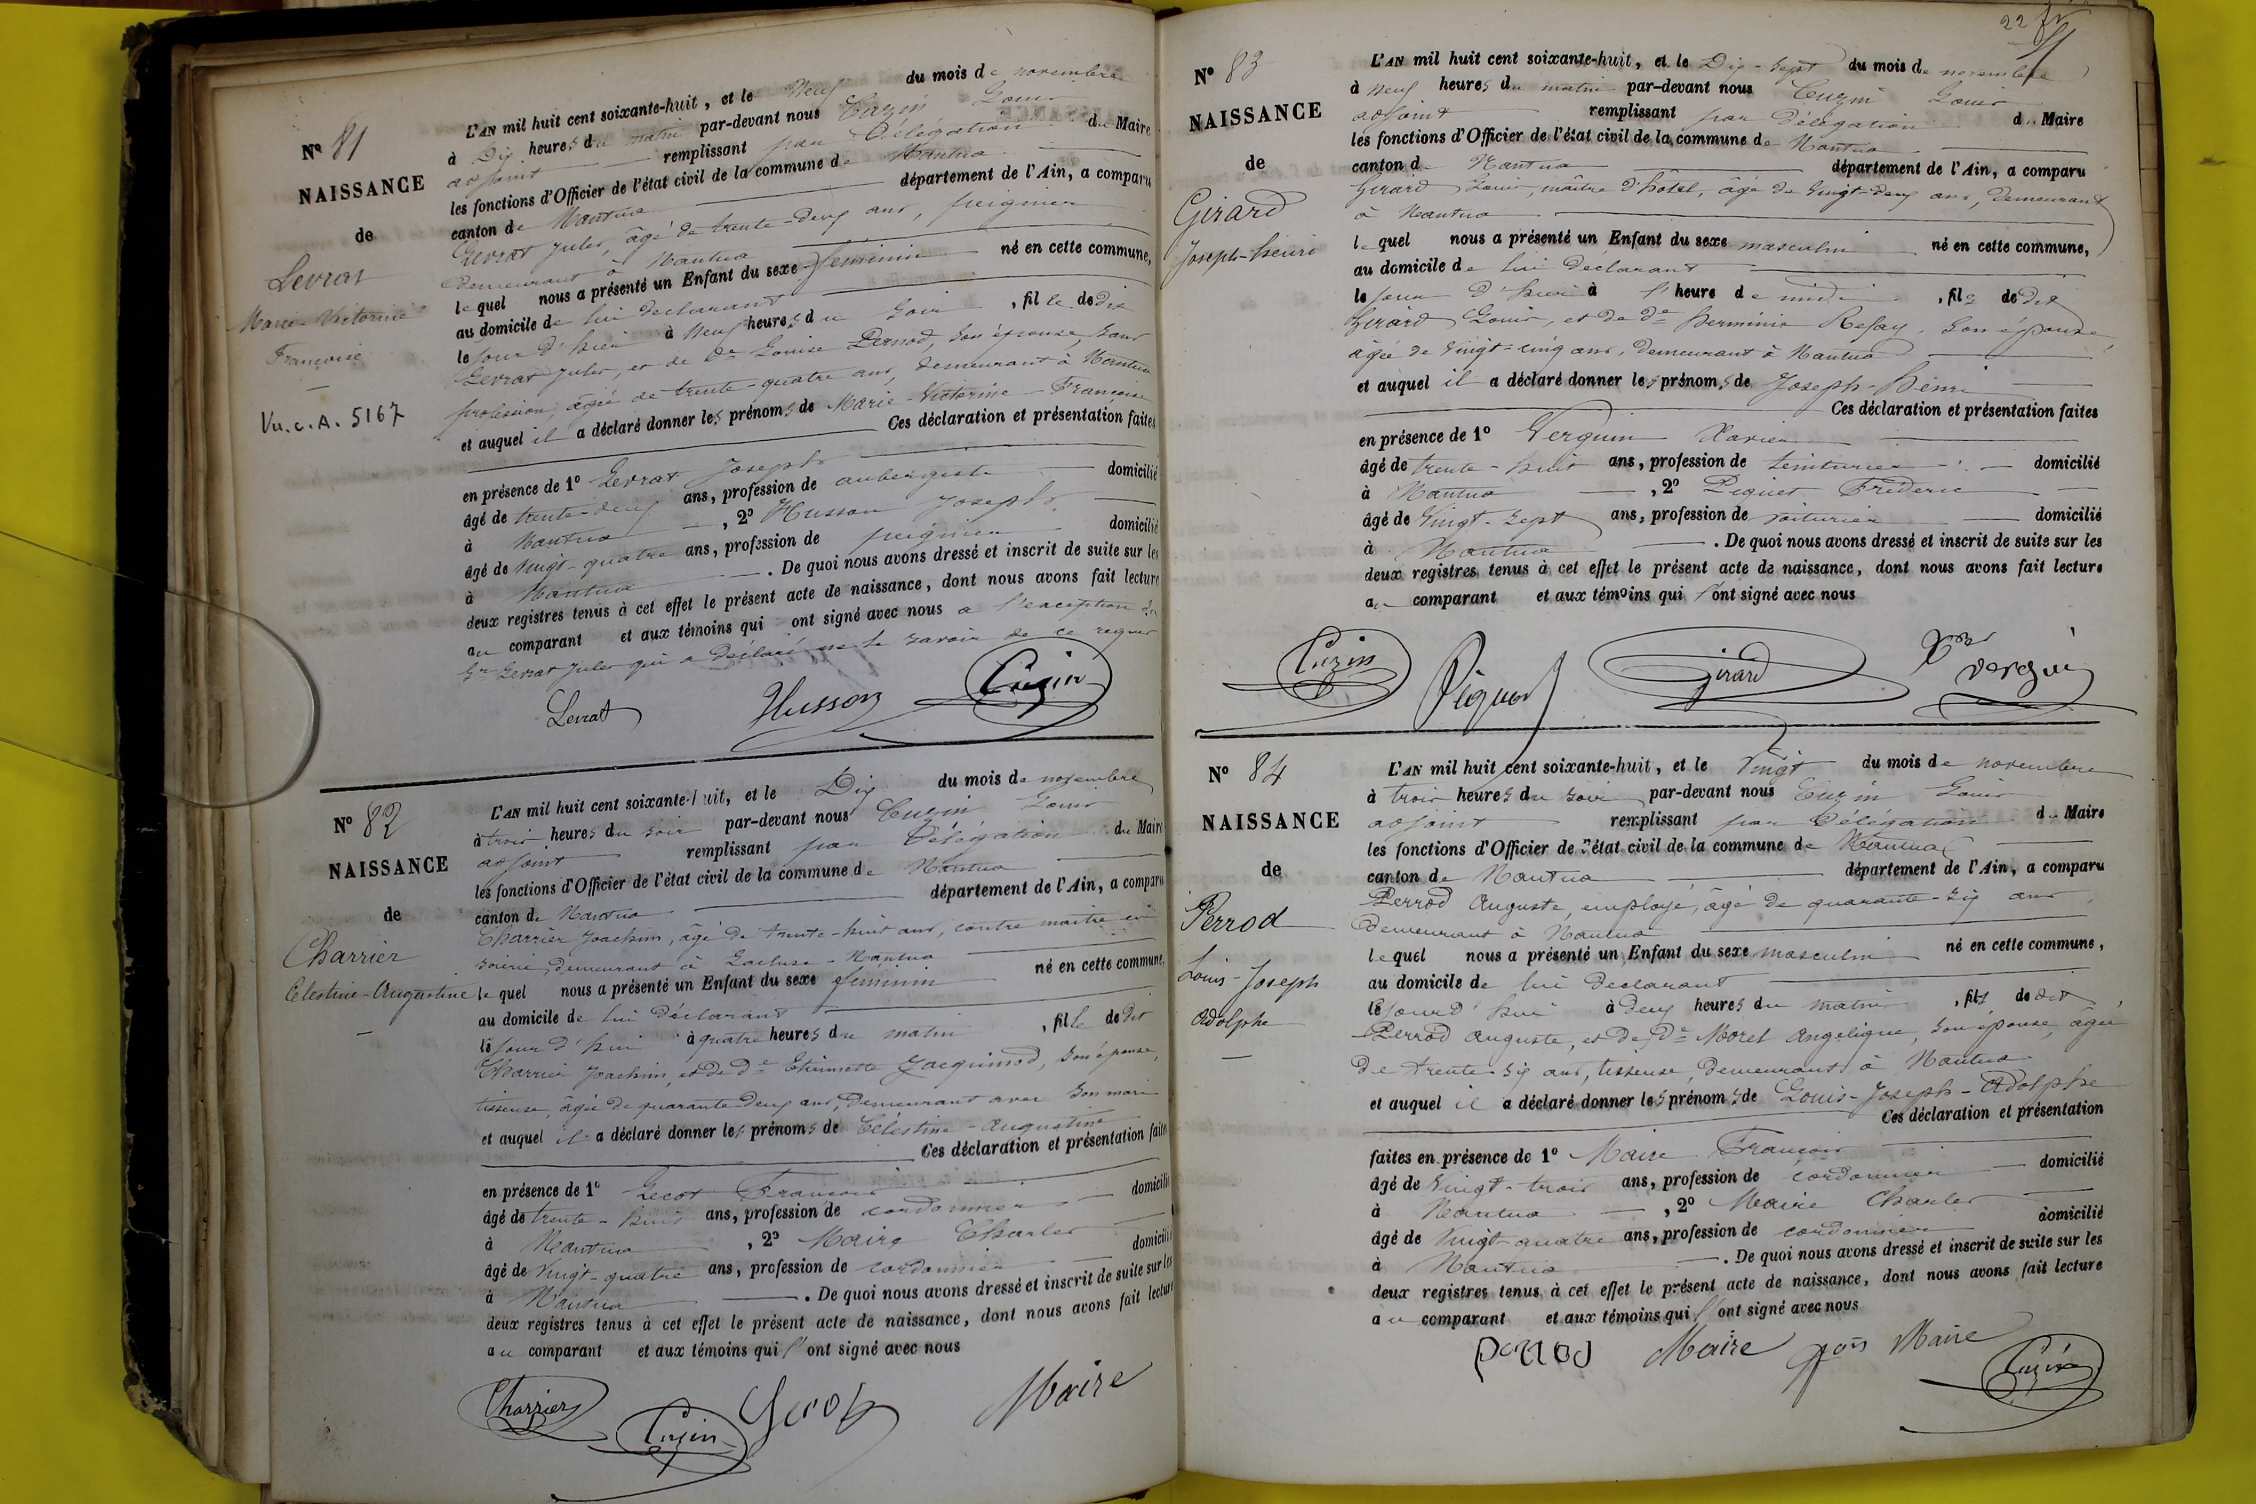 N° 81
NAISSANCE
de
Levrat
Marie-Victorine
Françoise
Vu.c.A. 5167
L'AN mil huit cent soixante-huit, et le Neuf du mois de novembre
à Dix heures du matin par-devant nous Cuzin Louis
adjoint remplissant par Délégation du Maire
les fonctions d'Officier de l'état civil de la commune de Nantua
canton de Nantua département de l'Ain, a comparu
Levrat Jules, âgé de trente-deux ans, peignier
demeurant à Nantua
lequel nous a présenté un Enfant du sexe féminin né en cette commune,
au domicile de lui déclarant
le jour d'hier à Neuf heures du soir, fille de dit
Levrat Jules, et de De Louise Pernod, son épouse, sans
profession, âgée de trente-quatre ans, demeurant à Nantua
et auquel il a déclaré donner les prénoms de Marie-Victorine-Françoise
Ces déclaration et présentation faites
en présence de 1° Levrat Joseph
âgé de trente-deux ans, profession de aubergiste domicilié
à Nantua, 2° Husson Joseph
âgé de vingt-quatre ans, profession de peignier domicilié
à Nantua. De quoi nous avons dressé et inscrit de suite sur les
deux registres tenus à cet effet le présent acte de naissance, dont nous avons fait lecture
au comparant et aux témoins qui ont signé avec nous a l'exception du
Sr Levrat Jules qui a déclaré ne le savoir de ce requis
Levrat Husson Cuzin
N° 82
NAISSANCE
de
Charrier
Célestine-Augustine
L'AN mil huit cent soixante-huit, et le Dix du mois de novembre
à trois heures du soir par-devant nous Cuzin Louis
adjoint remplissant par Délégation du Maire
les fonctions d'Officier de l'état civil de la commune de Nantua
canton de Nantua département de l'Ain, a comparu
Charrier Joachim, âgé de trente-huit ans, contre maitre en
soierie, demeurant à Lacluse-Nantua
lequel nous a présenté un Enfant du sexe féminin né en cette commune,
au domicile de lui déclarant
le jour d'hui à quatre heures du matin, fille de dit
Charrier Joachim, et de De Etiennette Jacquinod, son épouse,
tisseuse, âgée de quarante deux ans, demeurant avec son mari
et auquel il a déclaré donner les prénoms de Célestine-Augustine
Ces déclaration et présentation faites
en présence de 1° Lecot François
âgé de trente-huit ans, profession de cordonnier domicilié
à Nantua, 2° Maire Charles
âgé de vingt-quatre ans, profession de cordonnier domicilié
à Nantua. De quoi nous avons dressé et inscrit de suite sur les
deux registres tenus à cet effet le présent acte de naissance, dont nous avons fait lecture
au comparant et aux témoins qui l'ont signé avec nous
Charrier Cuzin Maire
22
N° 83
NAISSANCE
de
Girard
Joseph-Henri
L'AN mil huit cent soixante-huit, et le Dix-Sept du mois de novembre
à Neuf heures du matin par-devant nous Cuzin Louis
adjoint remplissant par Délégation du Maire
les fonctions d'Officier de l'état civil de la commune de Nantua
canton de Nantua département de l'Ain, a comparu
Girard Louis, maître d'hôtel, âgé de vingt-deux ans, demeurant
à Nantua
lequel nous a présenté un Enfant du sexe masculin né en cette commune,
au domicile de lui déclarant
le jour d'hier à l'heure de midi, fils de dit
Girard Louis, et de De Herminie Refay, son épouse,
âgée de vingt-cinq ans, demeurant à Nantua
et auquel il a déclaré donner les prénoms de Joseph-Henri
Ces déclaration et présentation faites
en présence de 1° Verguin Xavier
âgé de trente-huit ans, profession de teinturier domicilié
à Nantua, 2° Piquet Fréderic
âgé de vingt-sept ans, profession de voiturier domicilié
à Nantua. De quoi nous avons dressé et inscrit de suite sur les
deux registres tenus à cet effet le présent acte de naissance, dont nous avons fait lecture
au comparant et aux témoins qui l'ont signé avec nous
Cuzin Piquet Girard Xer Verguin
N° 84
NAISSANCE
de
Perrod
Louis-Joseph
Adolphe
L'AN mil huit cent soixante-huit, et le Vingt du mois de novembre
à trois heures du soir par-devant nous Cuzin Louis
adjoint remplissant par Délégation du Maire
les fonctions d'Officier de l'état civil de la commune de Nantua
canton de Nantua département de l'Ain, a comparu
Perrod Auguste, employé, âgé de quarante-six ans,
demeurant à Nantua
lequel nous a présenté un Enfant du sexe masculin né en cette commune,
au domicile de lui déclarant
le jour d'hui à deux heures du matin, fils de dit
Perrod Auguste, et de De Morel Angélique, son épouse, âgée
de trente-six ans, tisseuse, demeurant à Nantua
et auquel il a déclaré donner les prénoms de Louis-Joseph-Adolphe
Ces déclaration et présentation
faites en présence de 1° Maire François
âgé de vingt-trois ans, profession de cordonnier domicilié
à Nantua, 2° Maire Charles
âgé de vingt-quatre ans, profession de cordonnier domicilié
à Nantua. De quoi nous avons dressé et inscrit de suite sur les
deux registres tenus à cet effet le présent acte de naissance, dont nous avons fait lecture
au comparant et aux témoins qui l'ont signé avec nous
Perrod Maire fçois Maire Cuzin